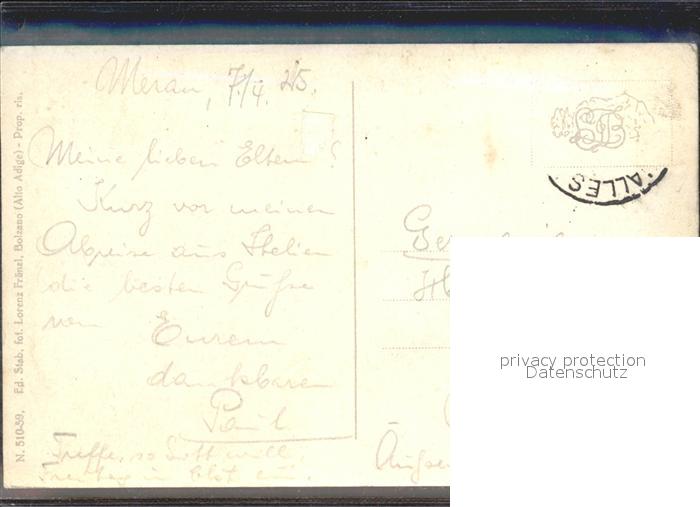 Meran, 7/4. 25.
Meine lieben Eltern!
Kurz vor meinen
Abreise aus Italien
die besten Grüße
von
Eurem
dankbaren
Paul
Treffe, so Gott will,
Freitag in ein.
N. 510-59. Ed. Stab. fot. Lorenz Fränzl, Bolzano (Alto Adige) - Prop. ris.
ALLES
privacy protection
Datenschutz